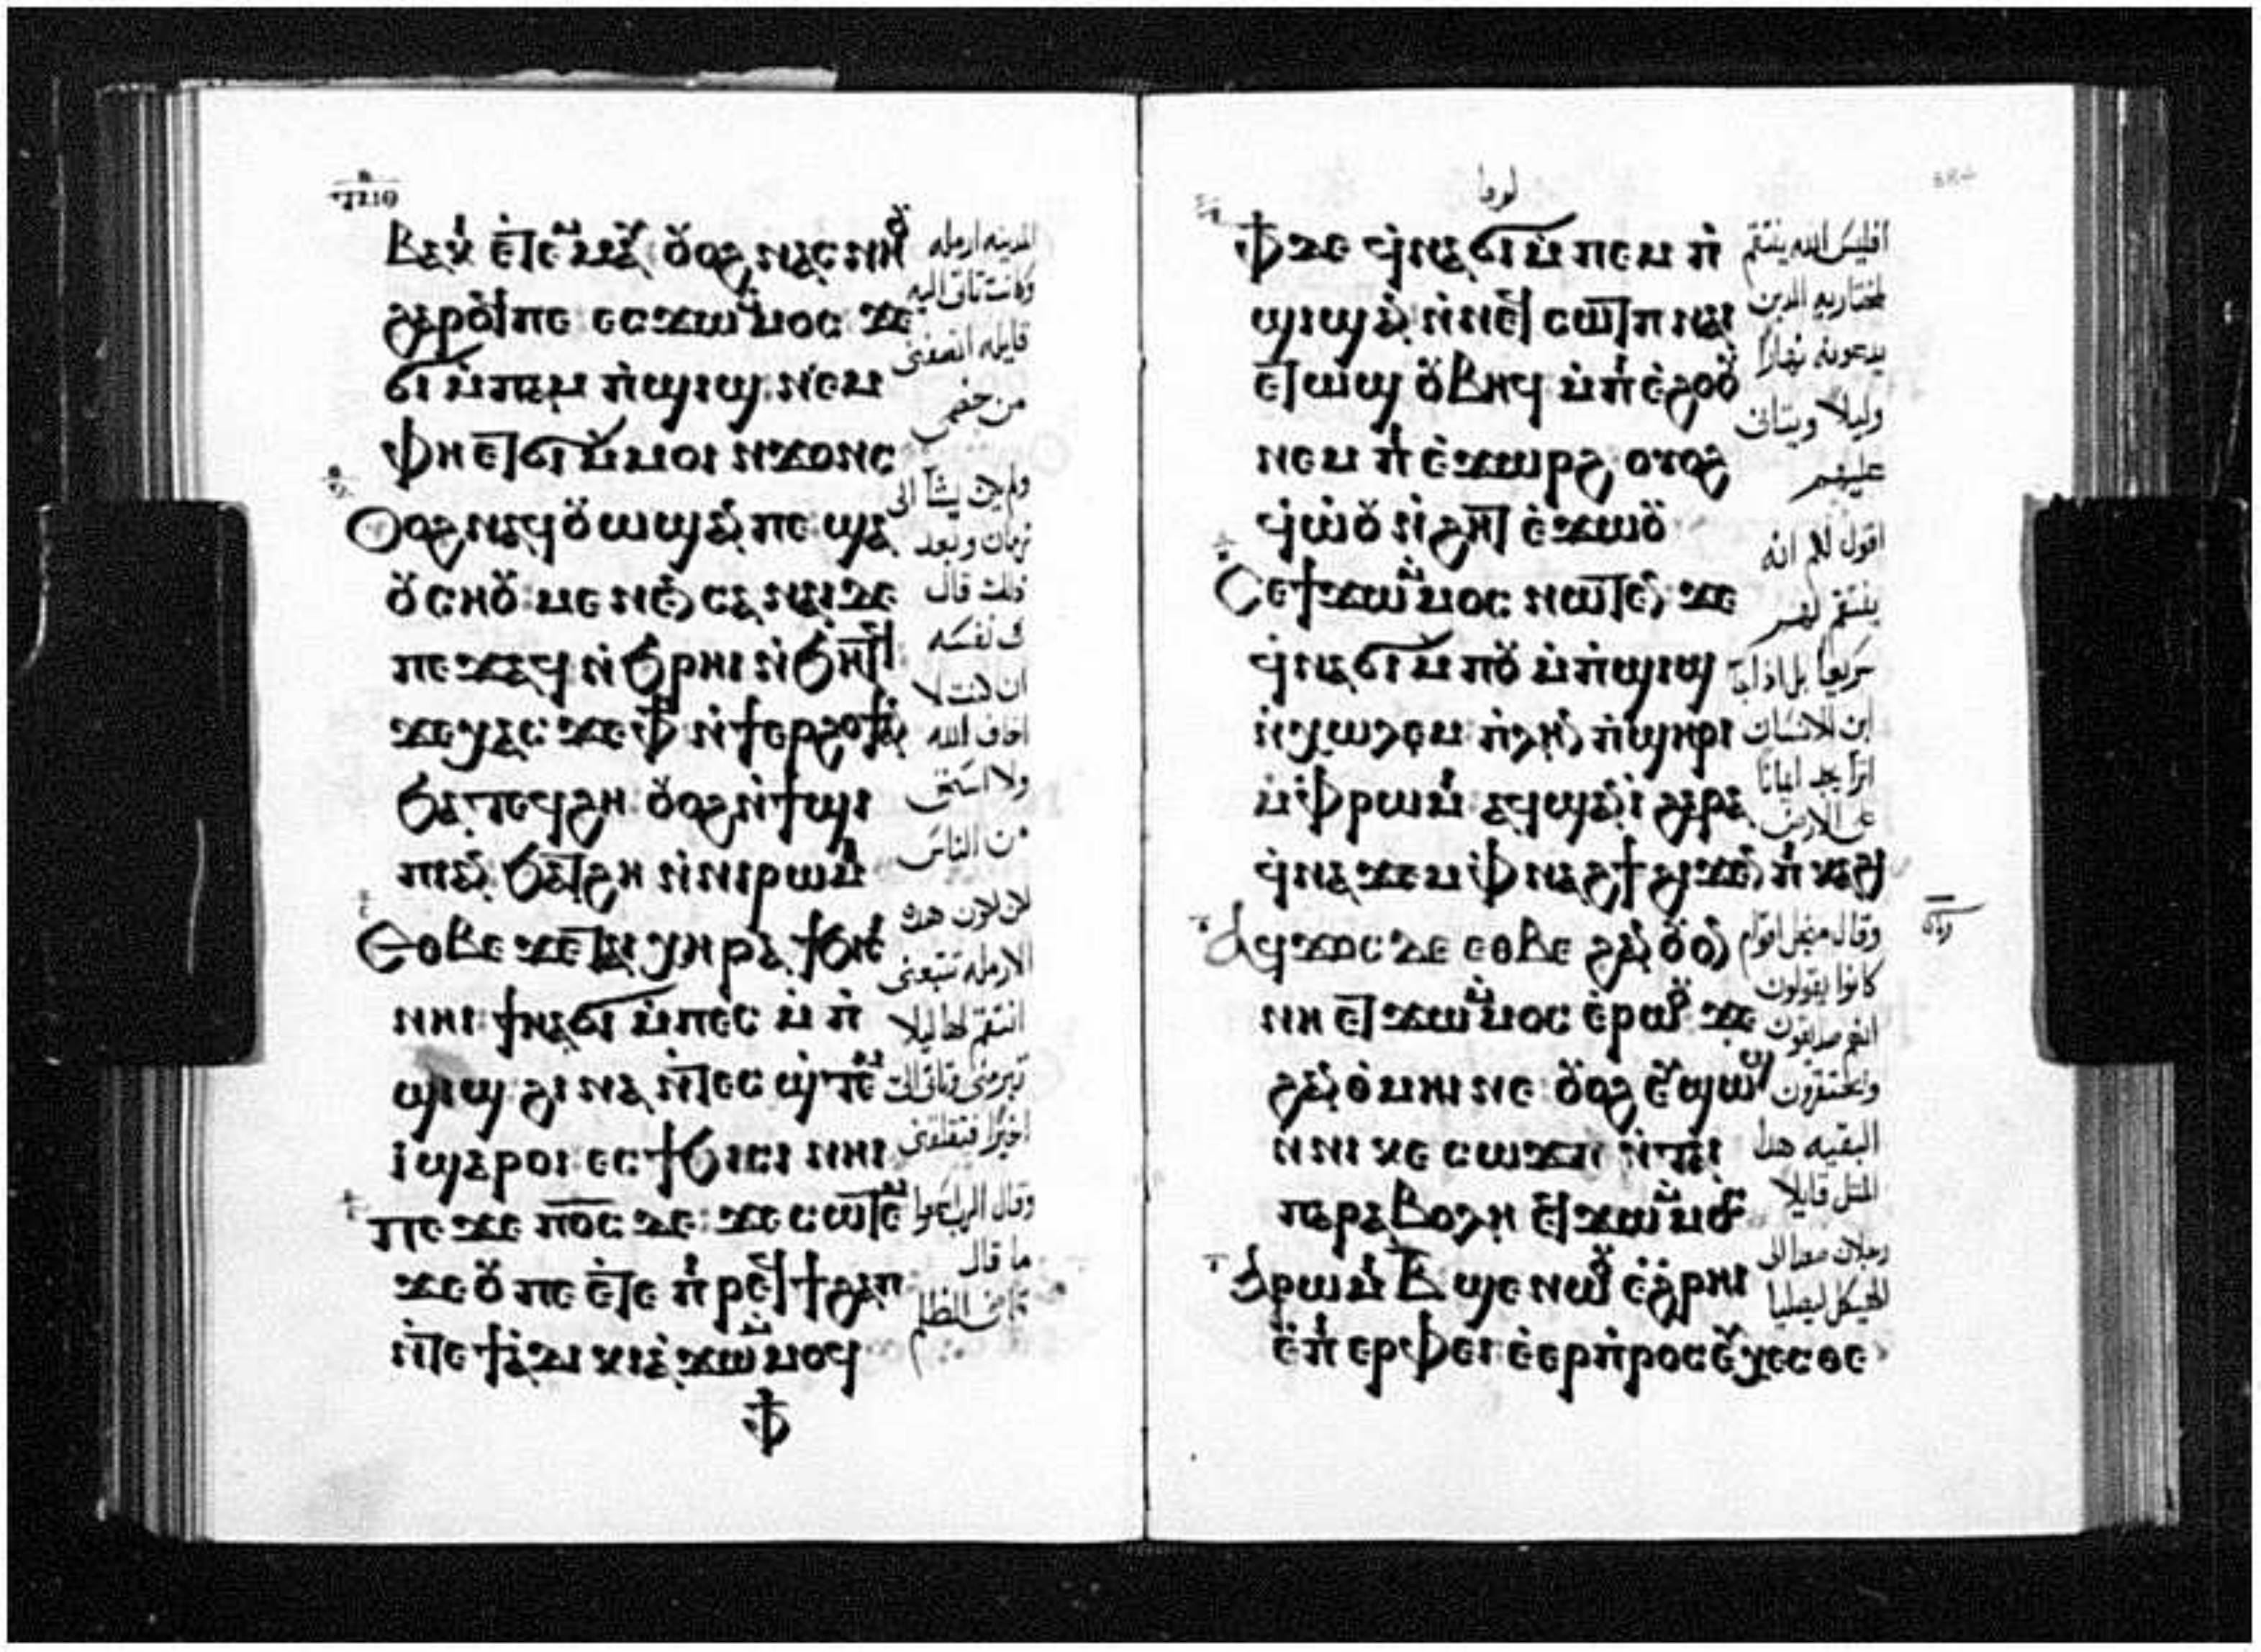 ⲃⲁⲕⲓ ⲉⲧⲉⲙⲙⲁⲩ ⲟⲩⲟϩ ⲛⲁⲥⲛⲏⲟⲩ
ϩⲁⲣⲟϥ ⲡⲉ ⲉⲥϫⲱ ⲙⲙⲟⲥ ϫⲉ
ϭⲓ ⲙⲡⲁⲙ ⲡϣⲓϣ ⲛⲉⲙ
ⲫⲏ ⲉⲧϭⲓ ⲙⲙⲟⲓ ⲛϫⲟⲛⲥ
ⲟⲩⲟϩ ⲛⲁϥⲟⲩⲱϣ ⲁⲛ ⲡⲉ ϣⲁ
ⲟⲩⲥⲏⲟⲩ ⲙⲉⲛⲉⲛⲥⲁ ⲛⲁⲓ ⲇⲉ
ⲡⲉϫⲁϥ ⲛϧⲣⲏⲓ ⲛϧⲏⲧϥ
ϫⲉ ⲭⲁⲥ ϫⲉ ⲫϯ ⲛϯⲉⲣϩⲟϯ ⲁⲛ
ϧⲁⲧⲉϥϩⲏ ⲟⲩⲟϩ ⲛϯϣⲓ
ⲡⲓ ⲁⲛ ϧⲁⲧϩⲏ ⲛⲛⲓⲣⲱⲙⲓ
ⲉⲑⲃⲉ ϫⲉ ⲧⲁⲓ ⲭⲏⲣⲁ ϯϧⲓⲥⲓ
ⲛⲏⲓ ϯⲛⲁϭⲓ ⲙⲡⲉⲥⲙ ⲡ
ϣⲓϣ ϩⲓⲛⲁ ⲛⲧⲉⲥϣⲧⲉⲙ
ⲓ ϣⲁⲣⲟⲓ ⲉⲥϯϧⲓⲥⲓ ⲛⲏⲓ
ⲡⲉϫⲉ ⲡⲟⲥ ⲇⲉ ϫⲉ ⲥⲱⲧⲉⲙ
ϫⲉ ⲟⲩ ⲡⲉ ⲉⲧⲉ ⲡⲓⲣⲉϥϯϩⲁⲡ
ⲛⲧⲉ ϯⲁⲇⲓⲕⲓⲁ ϫⲱ ⲙⲙⲟϥ
ⲫϯ
المدينه ارمله
وكانت تاتى اليه
قايله انصفنى
من خصمى
ولم يكن يشآ الى
زمان وبعد
ذلك قال
فى نفسه
ان كنت لا
اخاف الله
ولا استحى
من الناس
لكن لكون هذه
الارمله تتعبنى
انتقم لها ليلا
وتاتى الى
اخيرًا فتقلقنى
وقال الرب اسمعوا
ما قال
قاضى الظلم
لوقا
ⲫϯ ⲇⲉ ϥⲛⲁϭⲓ ⲙⲡⲉⲙ ⲡ
ϣⲓϣ ⲁⲛ ⲛⲛⲉϥⲥⲱⲧⲡ ⲛⲁⲓ
ⲉⲧⲱϣ ⲟⲩⲃⲏϥ ⲙⲡⲓⲉϩⲟⲟⲩ
ⲛⲉⲙ ⲡⲓⲉϫⲱⲣϩ ⲟⲩⲟϩ
ϥⲱⲟⲩ ⲛϩⲏⲧ ⲉϫⲱⲟⲩ
ⲥⲉ ϯϫⲱ ⲙⲙⲟⲥ ⲛⲱⲧⲉⲛ ϫⲉ
ϥⲛⲁϭⲓ ⲙⲡⲟⲩⲙ ⲡϣⲓϣ
ⲛⲭⲱⲗⲉⲙ ⲡⲗⲏⲛ ⲡϣⲏⲣⲓ
ⲙⲫⲣⲱⲙⲓ ⲁϥϣⲁⲛⲓ ϩⲁⲣⲁ
ϥⲛⲁϫⲉⲙ ⲫⲛⲁϩϯ ϩⲓϫⲉⲛ ⲡⲓⲕⲁϩⲓ
ⲁϥϫⲟⲥ ⲇⲉ ⲉⲑⲃⲉ ϩⲁⲛⲟⲩⲟⲛ
ⲛⲏ ⲉⲧϫⲱ ⲙⲙⲟⲥ ⲉⲣⲱⲟⲩ ϫⲉ
ϩⲁⲛⲑⲙⲏⲓ ⲛⲉ ⲟⲩⲟϩ ⲉⲩϣⲱϣϥ
ⲛⲛⲓⲕⲉⲥⲱϫⲡ ⲛⲧⲁⲓ
ⲡⲁⲣⲁⲃⲟⲗⲏ ⲉϥϫⲱ ⲙⲙⲟⲥ
ⲁⲣⲱⲙⲓ ⲃ ϣⲉ ⲛⲱⲟⲩ ⲉϩⲣⲏⲓ
ⲉⲡⲓⲉⲣⲫⲉⲓ ⲉⲉⲣⲡⲣⲟⲥⲉⲩⲭⲉⲥⲑⲉ
افليس الله ينتقم
لمختاريه الذين
يدعونه نهارًا
وليلًا ويتانى
عليهم
اقول لكم انه
ينتقم لهم
سريعًا بل اذا جآ
ابن الانسان
اترآ يجد ايمانًا
على الارض
وقال من اجل اقوام
كانوا يقولون
انهم صديقون
ويحتقرون
البقيه هذا
المثل قايلًا
رجلان صعدا الى
الهيكل ليصليا